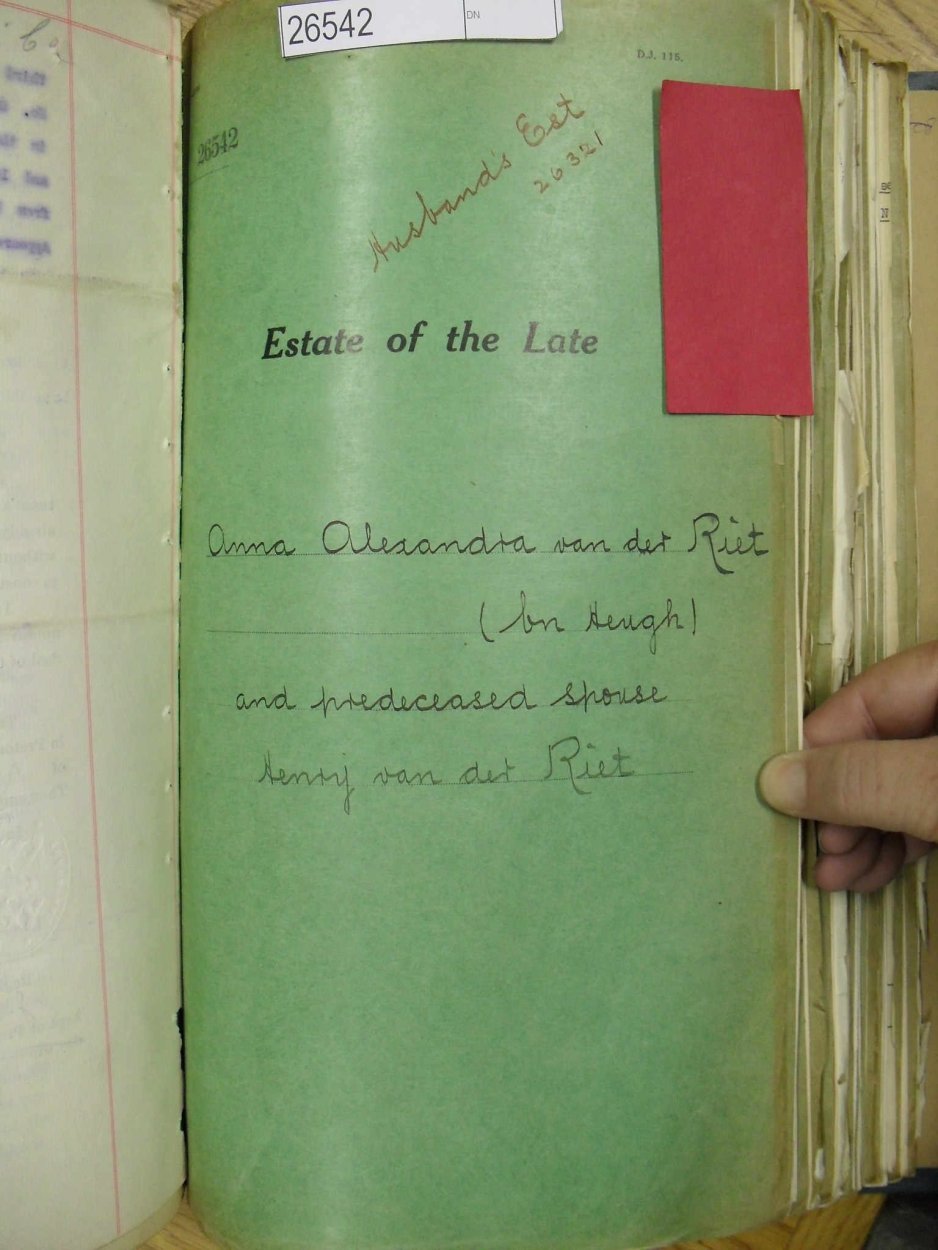 26542
DN
D.J. 115.
26542
Husband's Est
26321
Estate of the Late
Anna Alexandra van der Riet
(bn Heugh)
and predeceased spouse
Henry van der Riet